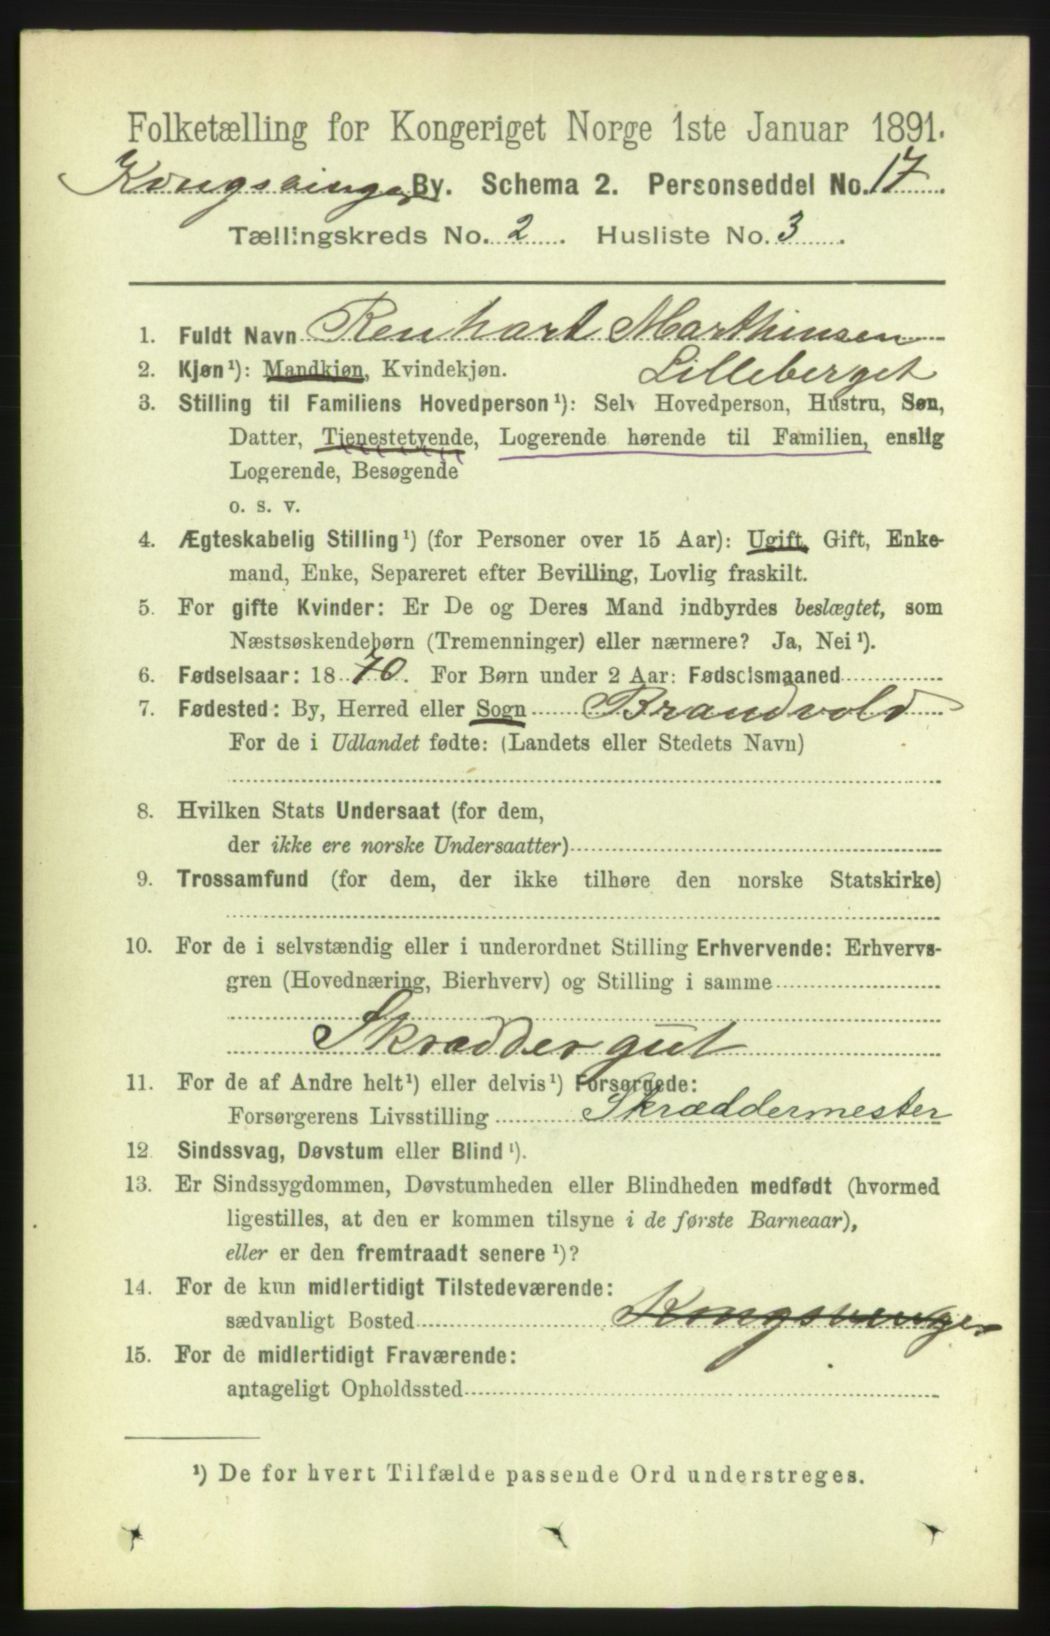 Folketælling for Kongeriget Norge 1ste Januar 1891.
Kongsvinger By. Schema 2. Personseddel No. 17
Tællingskreds No. 2. Husliste No. 3.
1. Fuldt Navn Renhart Marthinsen
Lilleberget
2. Kjøn¹): Mandkjøn, Kvindekjøn.
3. Stilling til Familiens Hovedperson¹): Selv Hovedperson, Hustru, Søn,
Datter, Tjenestetyende, Logerende hørende til Familien, enslig
Logerende, Besøgende
o. s. v.
4. Ægteskabelig Stilling¹) (for Personer over 15 Aar): Ugift, Gift, Enke-
mand, Enke, Separeret efter Bevilling, Lovlig fraskilt.
5. For gifte Kvinder: Er De og Deres Mand indbyrdes beslægtet, som
Næstsøskendebørn (Tremenninger) eller nærmere? Ja, Nei¹).
6. Fødselsaar: 1870. For Børn under 2 Aar: Fødselsmaaned
7. Fødested: By, Herred eller Sogn Brandvold
For de i Udlandet fødte: (Landets eller Stedets Navn)
8. Hvilken Stats Undersaat (for dem,
der ikke ere norske Undersaatter)
9. Trossamfund (for dem, der ikke tilhøre den norske Statskirke)
10. For de i selvstændig eller i underordnet Stilling Erhvervende: Erhvervs-
gren (Hovednæring, Bierhverv) og Stilling i samme
Skræddergut
11. For de af Andre helt¹) eller delvis¹) Forsørgede:
Forsørgerens Livsstilling Skræddermester
12 Sindssvag, Døvstum eller Blind¹).
13. Er Sindssygdommen, Døvstumheden eller Blindheden medfødt (hvormed
ligestilles, at den er kommen tilsyne i de første Barneaar),
eller er den fremtraadt senere¹)?
14. For de kun midlertidigt Tilstedeværende:
sædvanligt Bosted Kongsvinger
15. For de midlertidigt Fraværende:
antageligt Opholdssted
¹) De for hvert Tilfælde passende Ord understreges.